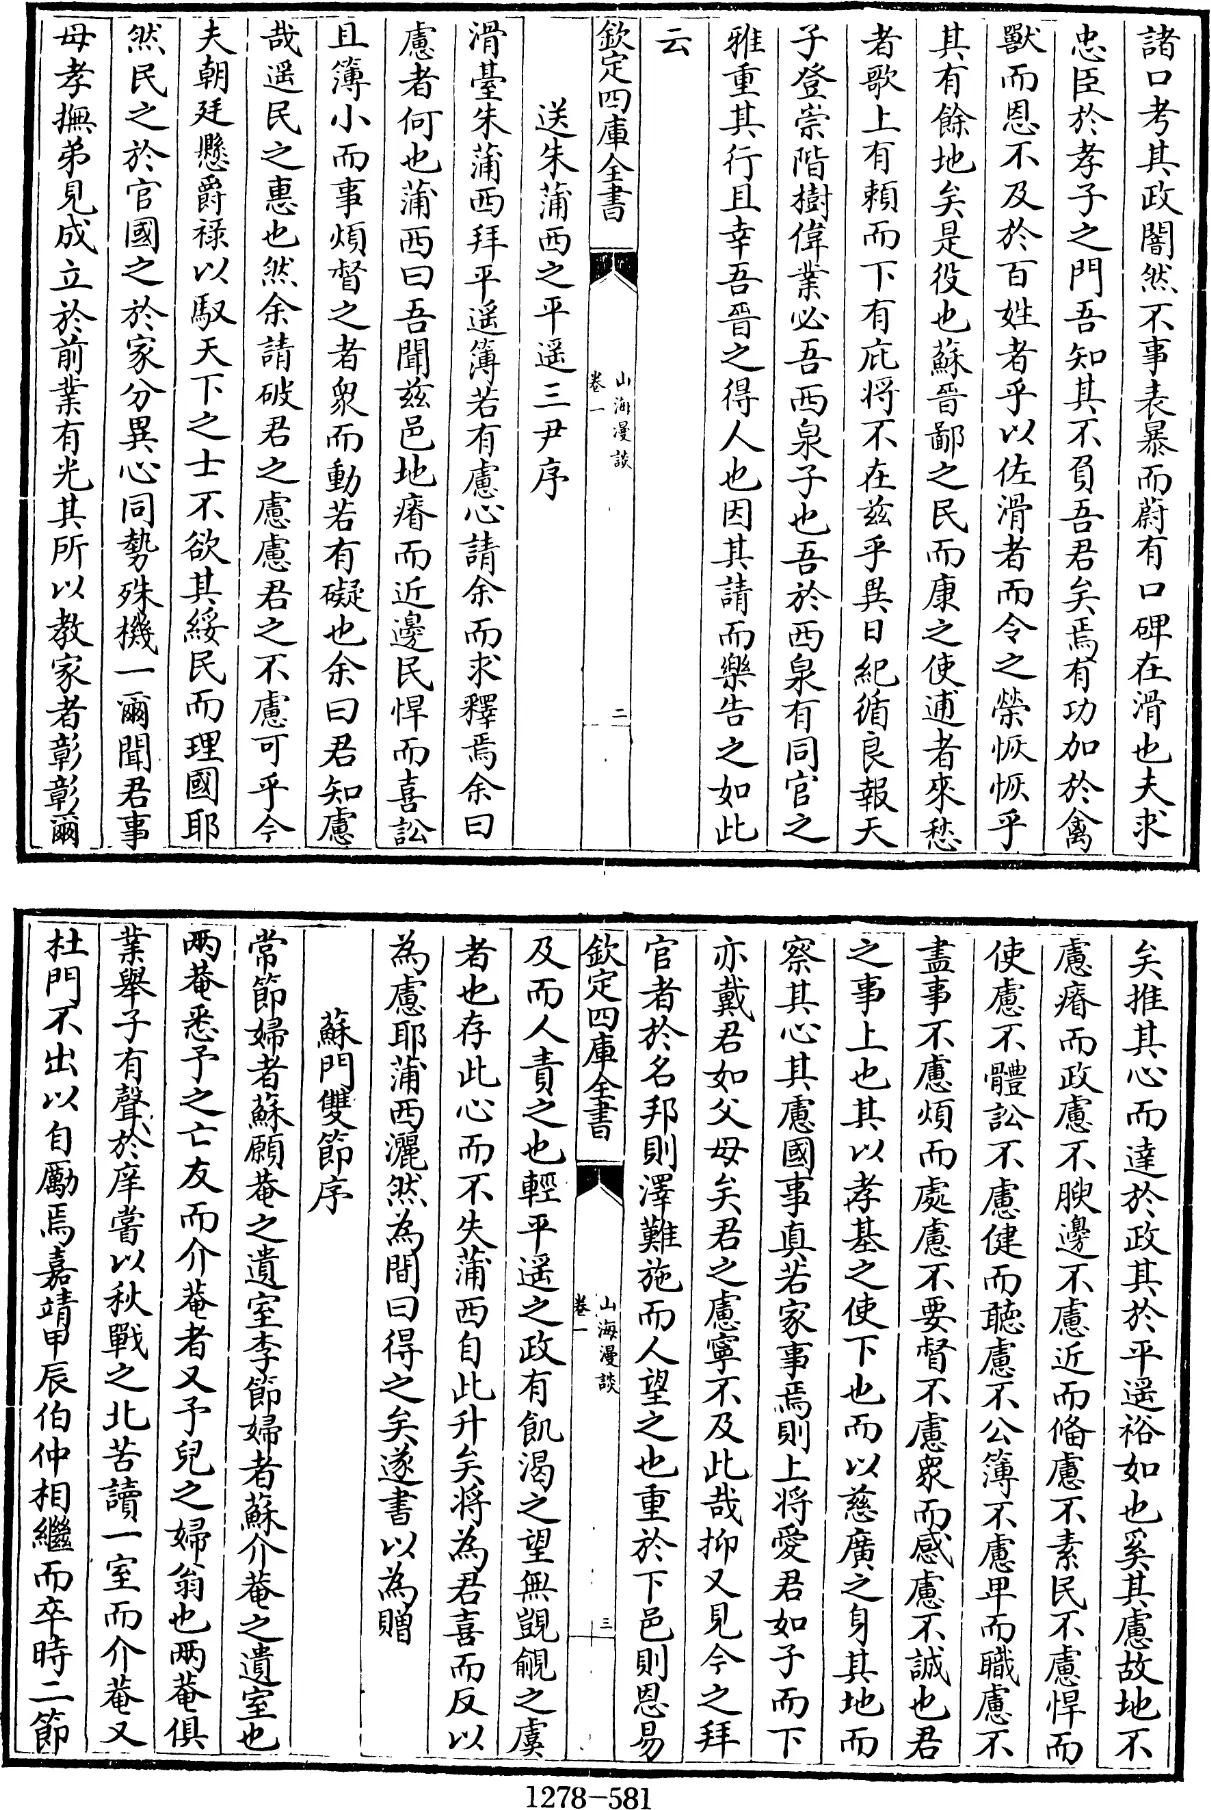 諸口考其政闇然不事表暴而蔚有口碑在滑也夫求
忠臣於孝子之門吾知其不負吾君矣焉有功加於禽
獸而恩不及於百姓者乎以佐滑者而令之榮恢恢乎
其有餘地矣是役也蘇晉鄙之民而康之使逋者來愁
者歌上有頼而下有庇将不在兹乎異日紀循良報天
子登崇階樹偉業必吾西泉子也吾於西泉有同官之
雅重其行且幸吾晉之得人也因其請而樂告之如此
云
欽定四庫全書
山海漫談
卷一
二
送朱蒲西之平遥三尹序
滑臺朱蒲西拜平遥簿若有慮心請余而求釋焉余曰
慮者何也蒲西曰吾聞兹邑地瘠而近邊民悍而喜訟
且簿小而事煩督之者衆而動若有礙也余曰君知慮
哉遥民之惠也然余請破君之慮慮君之不慮可乎今
夫朝廷懸爵禄以馭天下之士不欲其綏民而理國耶
然民之於官國之於家分異心同勢殊機一爾聞君事
母孝撫弟見成立於前業有光其所以教家者彰彰爾
矣推其心而達於政其於平遥裕如也奚其慮故地不
慮瘠而政慮不腴邊不慮近而俻慮不素民不慮悍而
使慮不體訟不慮健而聽慮不公簿不慮卑而職慮不
盡事不慮煩而處慮不要督不慮衆而感慮不誠也君
之事上也其以孝基之使下也而以慈廣之身其地而
察其心其慮國事真若家事焉則上将愛君如子而下
亦戴君如父母矣君之慮寧不及此哉抑又見今之拜
官者於名邦則澤難施而人望之也重於下邑則恩易
欽定四庫全書
山海漫談
卷一
三
及而人責之也輕平遥之政有飢渴之望無覬覦之虞
者也存此心而不失蒲西自此升矣将為君喜而反以
為慮耶蒲西灑然為間曰得之矣遂書以為贈
蘇門雙節序
常節婦者蘇願菴之遺室李節婦者蘇介菴之遺室也
兩菴悉予之亡友而介菴者又予兒之婦翁也兩菴俱
業舉子有聲於庠嘗以秋戰之北苦讀一室而介菴又
杜門不出以自勵焉嘉靖甲辰伯仲相繼而卒時二節
1278-581